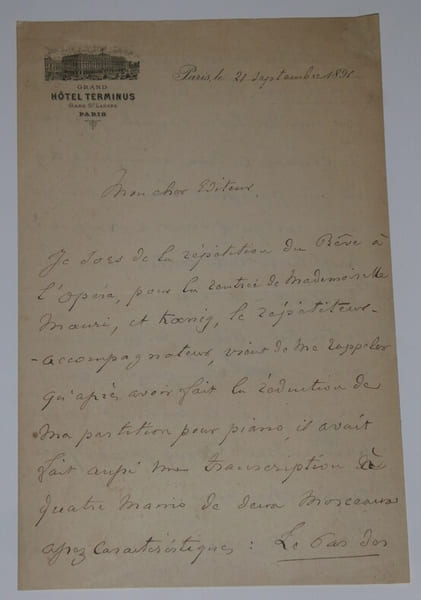 GRAND
HÔTEL TERMINUS
GARE St LAZARE
PARIS
Paris, le 21 septembre 1891
Mon cher Editeur,
Je sors de la répétition du Rêve à
l'Opéra, pour la rentrée de Mademoiselle
Mauri, et Kœnig, le répétiteur-
-accompagnateur, vient de me rappeler
qu'après avoir fait la réduction de
ma partition pour piano, il avait
fait aussi une transcription à
quatre mains de deux morceaux
assez caractéristiques : Le Pas des